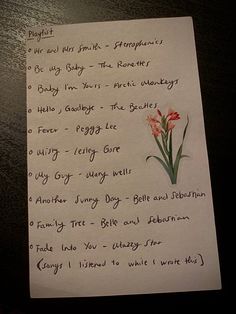 Playlist
Mr and Mrs Smith - Stereophonics
Be My Baby - The Ronettes
Baby I'm Yours - Arctic Monkeys
Hello, Goodbye - The Beatles
Fever - Peggy Lee
Misty - Lesley Gore
My Guy - Mary Wells
Another Sunny Day - Belle and Sebastian
Family Tree - Belle and Sebastian
Fade Into You - Mazzy Star
(songs I listened to while I wrote this)